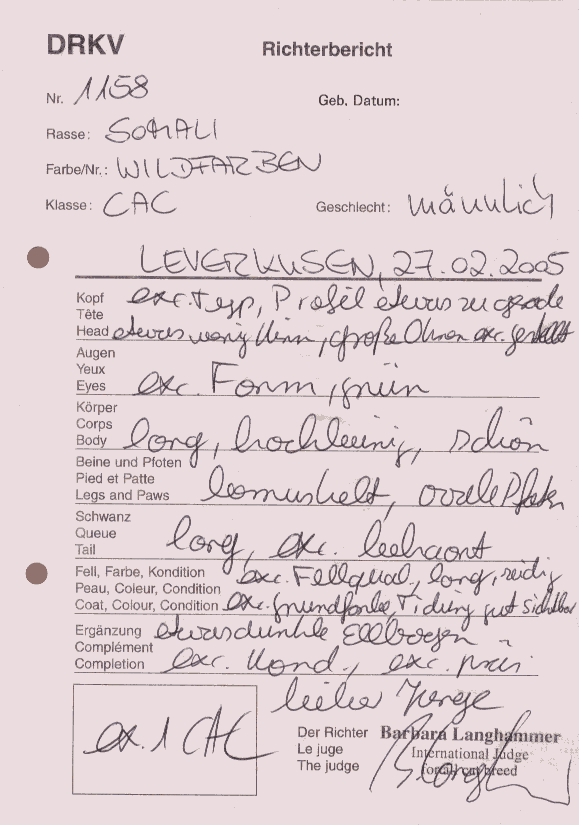 DRKV Richterbericht
Nr. 1158 Geb. Datum:
Rasse: SOMALI
Farbe/Nr.: WILDFARBEN
Klasse: CAC Geschlecht: männlich
LEVERKUSEN, 27.02.2005
Kopf exc. Typ, Profil etwas zu grade
Tête
Head etwas wenig Kinn, große Ohren exc. gestellt
Augen
Yeux
Eyes exc. Form, grün
Körper
Corps
Body lang, hochbeinig, schön
Beine und Pfoten
Pied et Patte
Legs and Paws bemuskelt, ovale Pfoten
Schwanz
Queue
Tail lang, exc. behaart
Fell, Farbe, Kondition exc. Fellqual., lang, seidig
Peau, Coleur, Condition
Coat, Colour, Condition exc. grundfarbe, Ticking gut sichtbar
Ergänzung etwas dunkle Ellbogen
Complément
Completion exc. Kond., exc. präs
lieber Junge
ex. 1 CAC
Der Richter Barbara Langhammer
Le juge International Judge
The judge for all cat breed